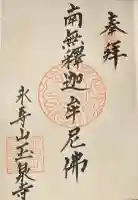 奉拜
南無釋迦牟尼佛
永壽山玉泉寺